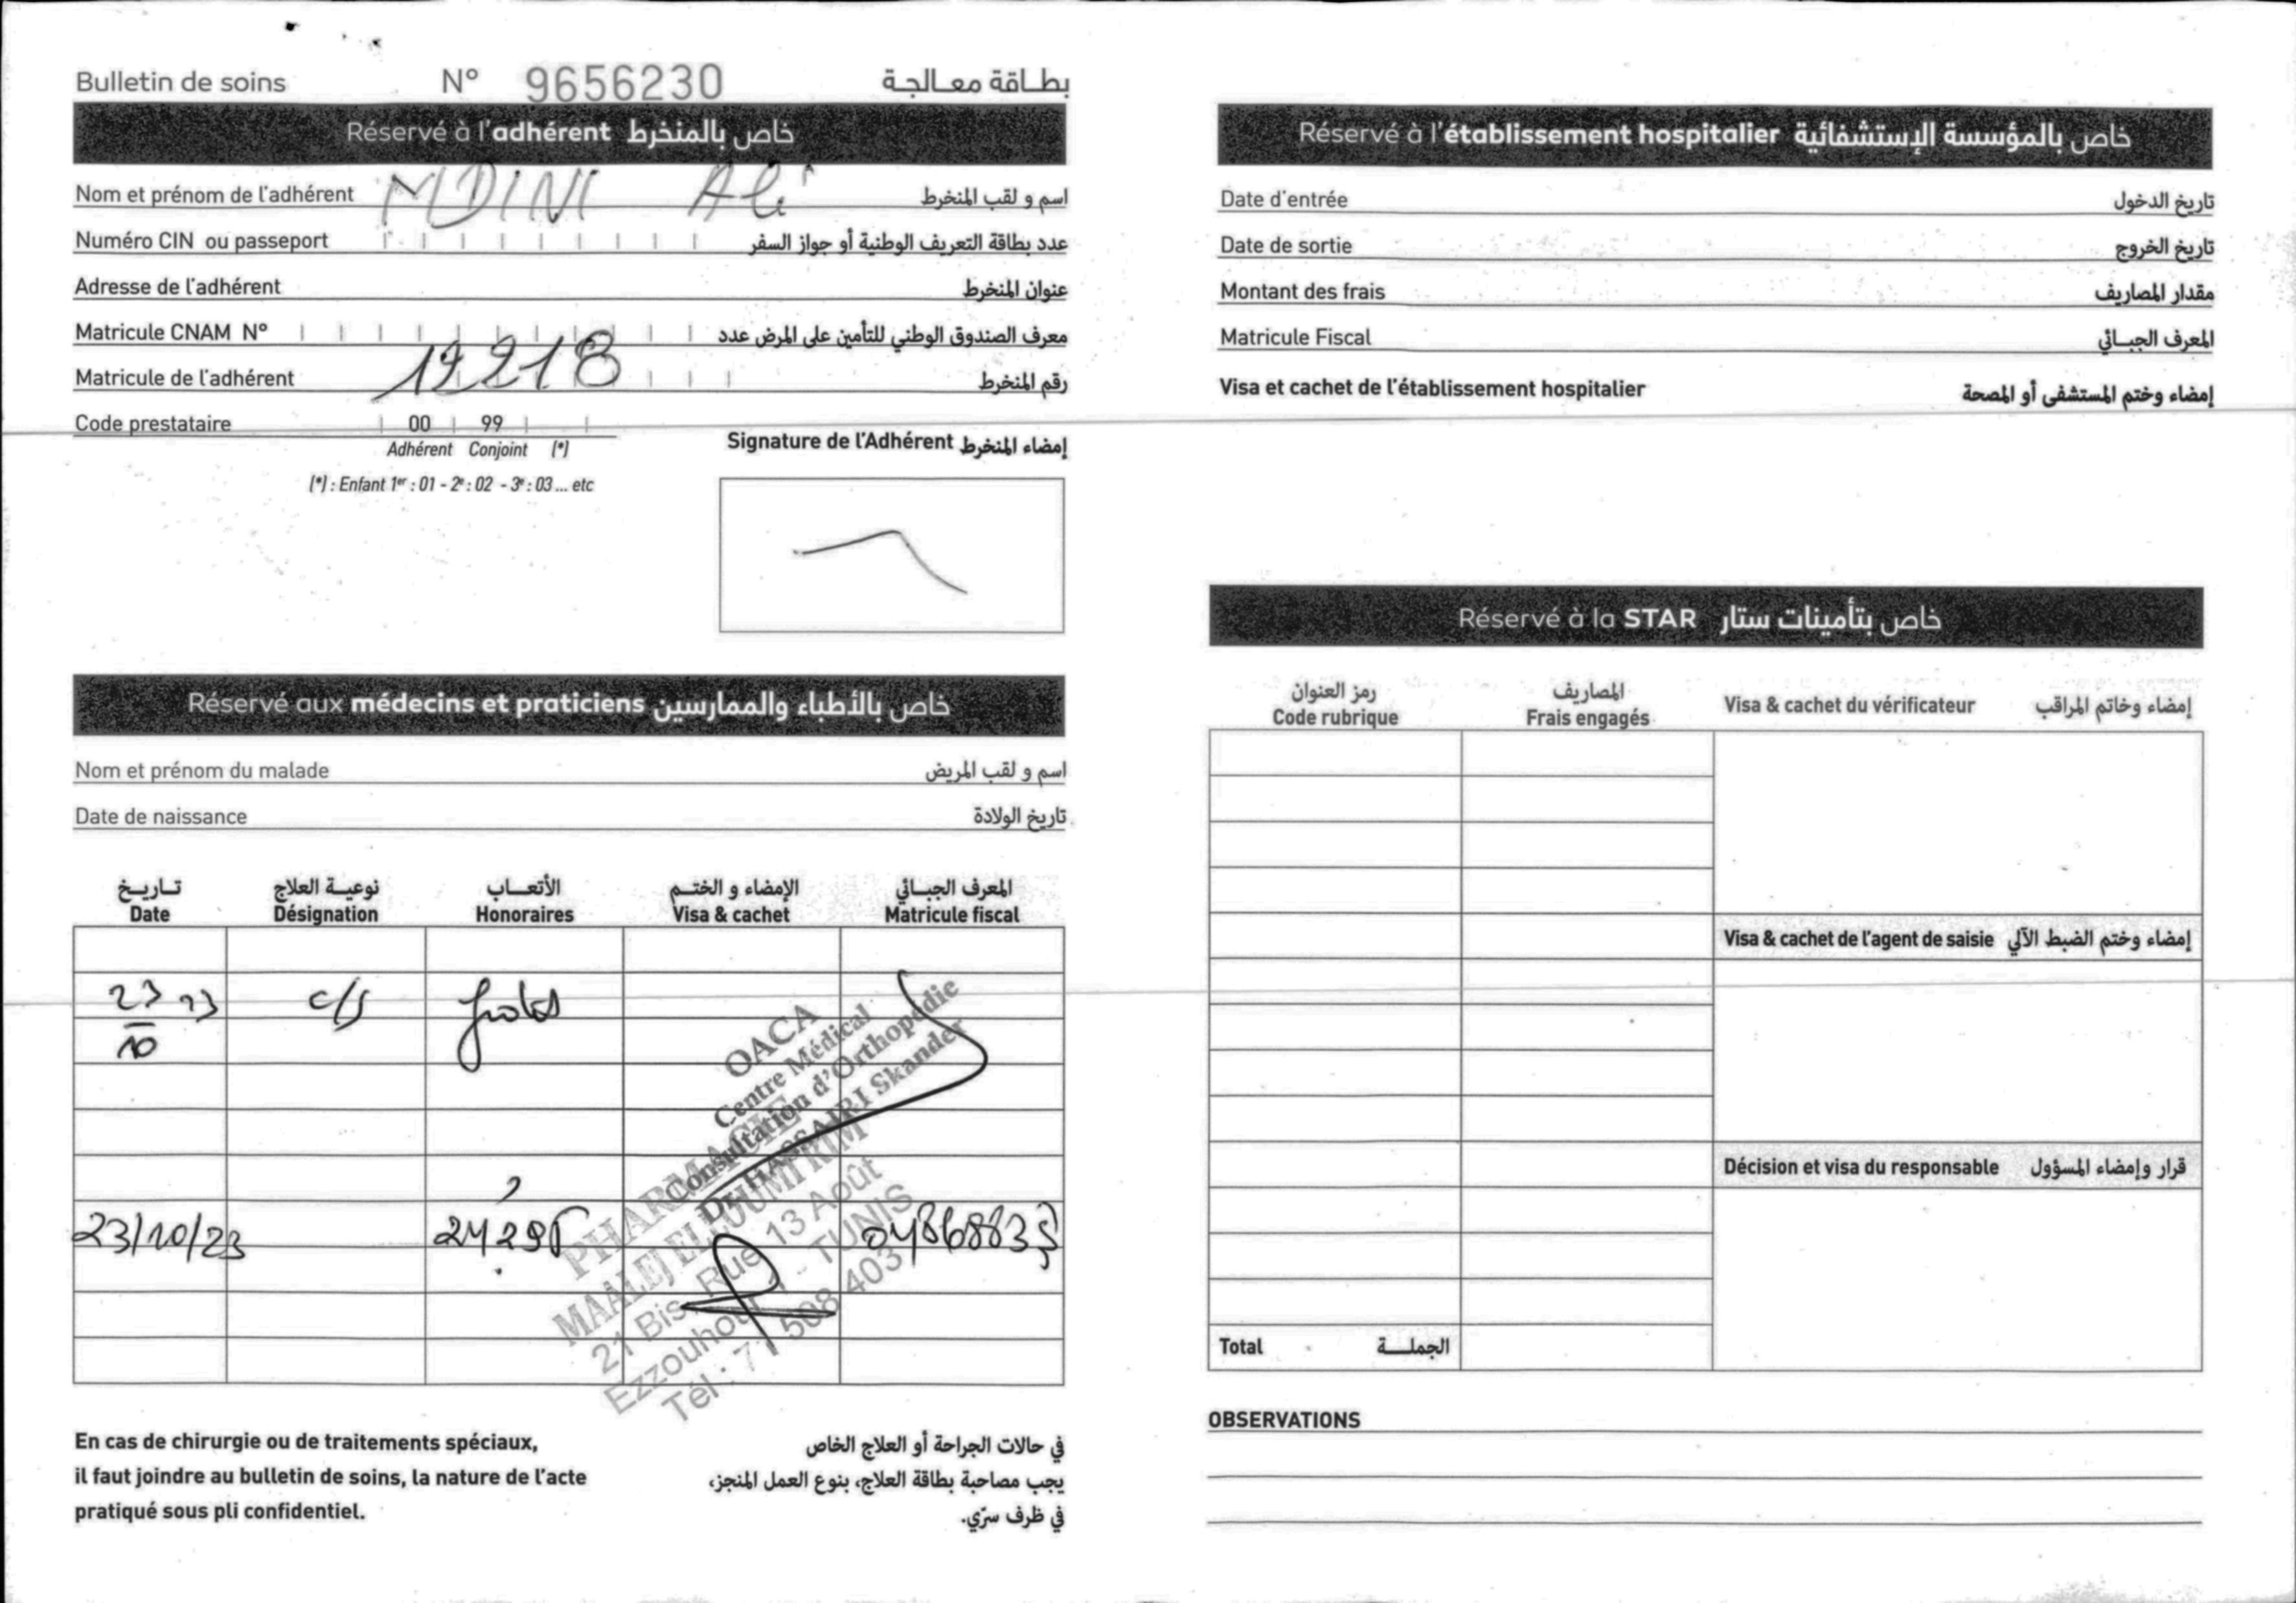 Bulletin de soins N° 9656230 بطاقة معالجة
Réservé à l'adhérent خاص بالمنخرط
Nom et prénom de l'adhérent MDINI Ali اسم و لقب المنخرط
Numéro CIN ou passeport عدد بطاقة التعريف الوطنية أو جواز السفر
Adresse de l'adhérent عنوان المنخرط
Matricule CNAM N° معرف الصندوق الوطني للتأمين على المرض عدد
Matricule de l'adhérent 19218 رقم المنخرط
Code prestataire 00 99
Adhérent Conjoint (*)
(*) : Enfant 1er : 01 - 2e : 02 - 3e : 03 ... etc
Signature de l'Adhérent إمضاء المنخرط
Réservé aux médecins et praticiens خاص بالأطباء والممارسين
Nom et prénom du malade اسم و لقب المريض
Date de naissance تاريخ الولادة
تاريخ نوعية العلاج الأتعاب الإمضاء و الختم المعرف الجبائي
Date Désignation Honoraires Visa & cachet Matricule fiscal
23 23 c/s
10
OACA
Centre Médical
Consultation d'Orthopédie
Dr. HASSAIRI Skander
23/10/23 24 295
PHARMACIE
MAALEJ ELLOUMI RIM
21 Bis, Rue 13 Août
Ezzouhour - TUNIS
Tél : 71 508 403
En cas de chirurgie ou de traitements spéciaux,
il faut joindre au bulletin de soins, la nature de l'acte
pratiqué sous pli confidentiel.
في حالات الجراحة أو العلاج الخاص
يجب مصاحبة بطاقة العلاج، بنوع العمل المنجز،
في ظرف سرّي.
Réservé à l'établissement hospitalier خاص بالمؤسسة الإستشفائية
Date d'entrée تاريخ الدخول
Date de sortie تاريخ الخروج
Montant des frais مقدار المصاريف
Matricule Fiscal المعرف الجبائي
Visa et cachet de l'établissement hospitalier إمضاء وختم المستشفى أو المصحة
Réservé à la STAR خاص بتأمينات ستار
رمز العنوان المصاريف
Code rubrique Frais engagés Visa & cachet du vérificateur إمضاء وخاتم المراقب
Visa & cachet de l'agent de saisie إمضاء وختم الضبط الآلي
Décision et visa du responsable قرار وإمضاء المسؤول
Total الجملة
OBSERVATIONS